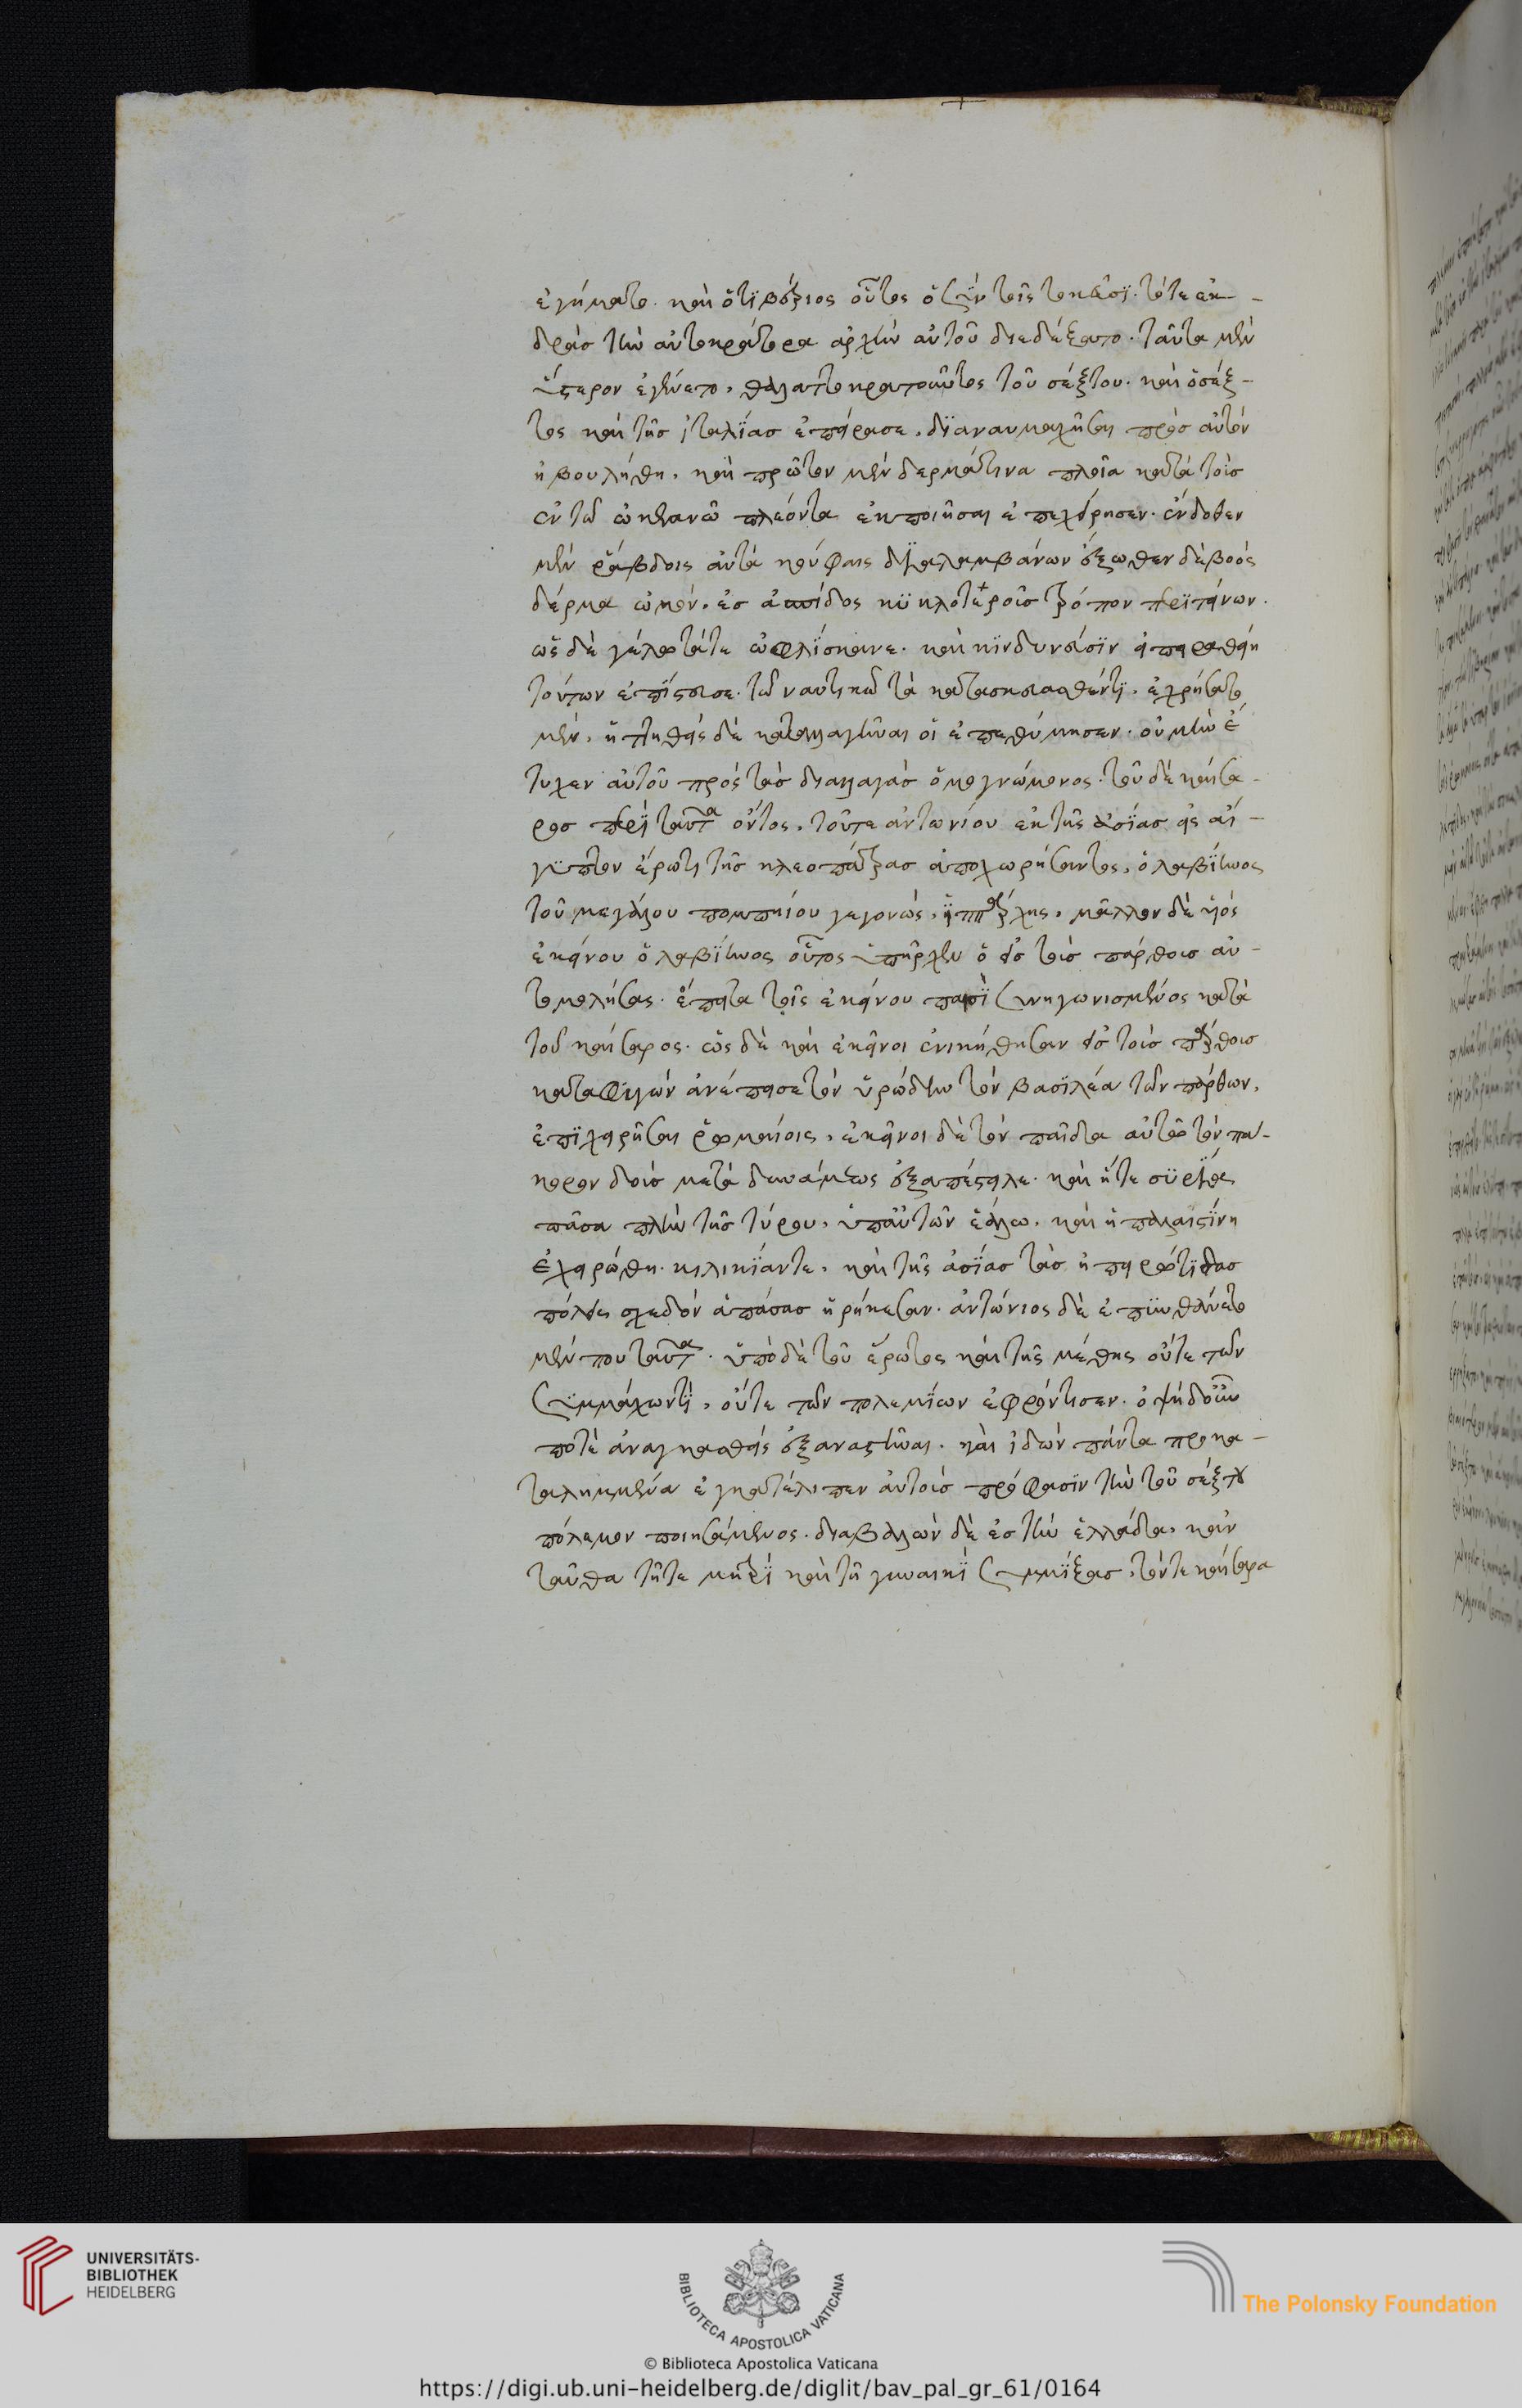 ἐγήματο. καὶ ὅτι βέριος οὗτος ὁ σὺν τοῖς τοκεῦσϊ. τότε ἐκ-
δρὰσ τὴν αὐτοκράτορα ἀρχὴν αὐτοῦ διεδέξατο. ταῦτα μὲν
ὕστερον ἐγένετο, θαλαττοκρατοῦντος τοῦ σέξτου. καὶ ὁ σέξ-
τος καὶ τῆσ ἰταλίασ ἐπείρασε, διαναυμαχῆσαι πρὸσ αὐτὸν
ἠβουλήθη, καὶ πρῶτον μὲν δερμάτινα πλοῖα κατὰ τοὺσ
ἐν τῶ ὠκεανῶ πλέοντα ἐκποιῆσαι ἐπεχείρησεν. ἔνδοθεν
μὲν ῥάβδοις αὐτὰ κούφαις διαλαμβάνων ἔξωθεν δὲ βοὸς
δέρμα ὠμὸν, ἐσ ἀσπίδος κυκλοτεροῦσ τρόπον περιτείνων.
ὡς δὲ γέλωτά τε ὠφλίσκανε. καὶ κινδυνεύσϊν ἀπειραθεὶ
τούτων ἐπίστευσε. τῶ ναυτικῶ τὰ κατασκευασθέντϊ, ἐχρήσατο
μὲν, ἡττηθεὶς δὲ καταλλαγῆναι οἱ ἐπεθύμησεν. οὐ μὴν ἔ
τυχεν αὐτοῦ πρὸς τὰσ διαλλαγὰσ ὁμογνώμονος. τοῦ δὲ καίσα-
ροσ περὶ ταῦτα ὄντος, τοῦ τε ἀντωνίου ἐκ τῆς ἀσίασ εἰς αἴ-
γυπτον ἔρωτι τῆσ κλεοπάτρασ ἀποχωρήσαντος, ὁ λαβίηνος
τοῦ μεγάλου πομπηίου γεγονὼς, ἵππάρχης, μᾶλλον δὲ υἱὸς
ἐκείνου ὁ λαβίηνος οὗτος ὑπῆρχεν ὁ εἰσ τοὺσ πάρθουσ αὐ-
τομολήσας. ἔπειτα τοῖς ἐκείνου παρὶ συνηγωνισμένος κατὰ
τοῦ καίσαρος. ὡς δὲ καὶ ἐκεῖνοι ἐνικήθησαν εἰσ τοὺσ πάρθουσ
καταφυγὼν ἀνέπεισε τὸν ὑρώδην τὸν βασιλέα τῶν πάρθων,
ἐπιχειρῆσαι ῥωμαίοις, ἐκεῖνοι δὲ τὸν παῖδα αὐτῶ τὸν πα-
κορον δοὺσ μετὰ δυνάμεως ἐξαπέστειλε. καὶ ἥ τε συρία
πᾶσα πλὴν τῆσ τύρου, ὑπ' αὐτῶν ἑάλω, καὶ ἡ παλαιστίνη
ἐχειρώθη. κιλικίαν τε, καὶ τῆς ἀσίασ τὰσ ἠπειρώτιδασ
πόλεις σχεδὸν ἁπάσασ ἡρήκεσαν. ἀντώνιος δὲ ἐπυνθάνετο
μέν που ταῦτα. ὑπὸ δὲ τοῦ ἔρωτος καὶ τῆς μέθης οὔτε τῶν
συμμάχων τι, οὔτε τῶν πολεμίων ἐφρόντισεν. ὀψὴ δ' οὖν
ποτὲ ἀναγκασθεὶς ἐξαναστῆναι. καὶ ἰδὼν πάντα προκα-
ταλημμένα ἐγκατέλιπεν αὐτοὺσ πρόφασιν τὴν τοῦ σέξτου
πόλεμον ποιησάμενος. διαβαλὼν δὲ ἐσ τὴν ἑλλάδα, κἀν
ταῦθα τῆ τε μητρὶ καὶ τῆ γυναικὶ συμμίξασ, τόν τε καίσαρα
UNIVERSITÄTS-
BIBLIOTHEK
HEIDELBERG
BIBLIOTECA APOSTOLICA VATICANA
The Polonsky Foundation
© Biblioteca Apostolica Vaticana
https://digi.ub.uni-heidelberg.de/diglit/bav_pal_gr_61/0164